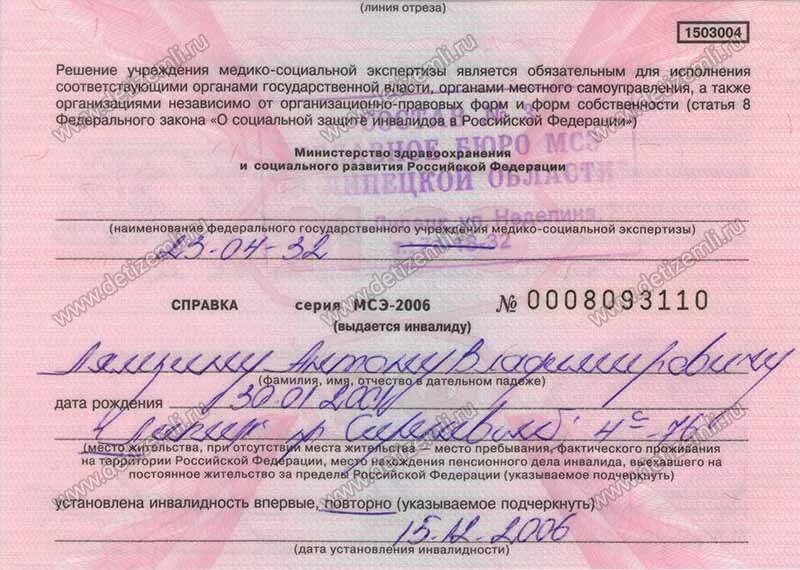 (линия отреза)
1503004
Решение учреждения медико-социальной экспертизы является обязательным для исполнения
соответствующими органами государственной власти, органами местного самоуправления, а также
организациями независимо от организационно-правовых форм и форм собственности (статья 8
Федерального закона «О социальной защите инвалидов в Российской Федерации»)
Министерство здравоохранения
и социального развития Российской Федерации
БЮРО МСЭ
ОБЛАСТИ
ул. Неделина
(наименование федерального государственного учреждения медико-социальной экспертизы)
23-04-32
СПРАВКА серия МСЭ-2006 № 0008093110
(выдается инвалиду)
Антону Владимировичу
(фамилия, имя, отчество в дательном падеже)
дата рождения 30.01.2001
(место жительства, при отсутствии места жительства — место пребывания, фактического проживания
на территории Российской Федерации, место нахождения пенсионного дела инвалида, выехавшего на
постоянное жительство за пределы Российской Федерации (указываемое подчеркнуть)
установлена инвалидность впервые, повторно (указываемое подчеркнуть)
15.12.2006
(дата установления инвалидности)
www.detizemli.ru